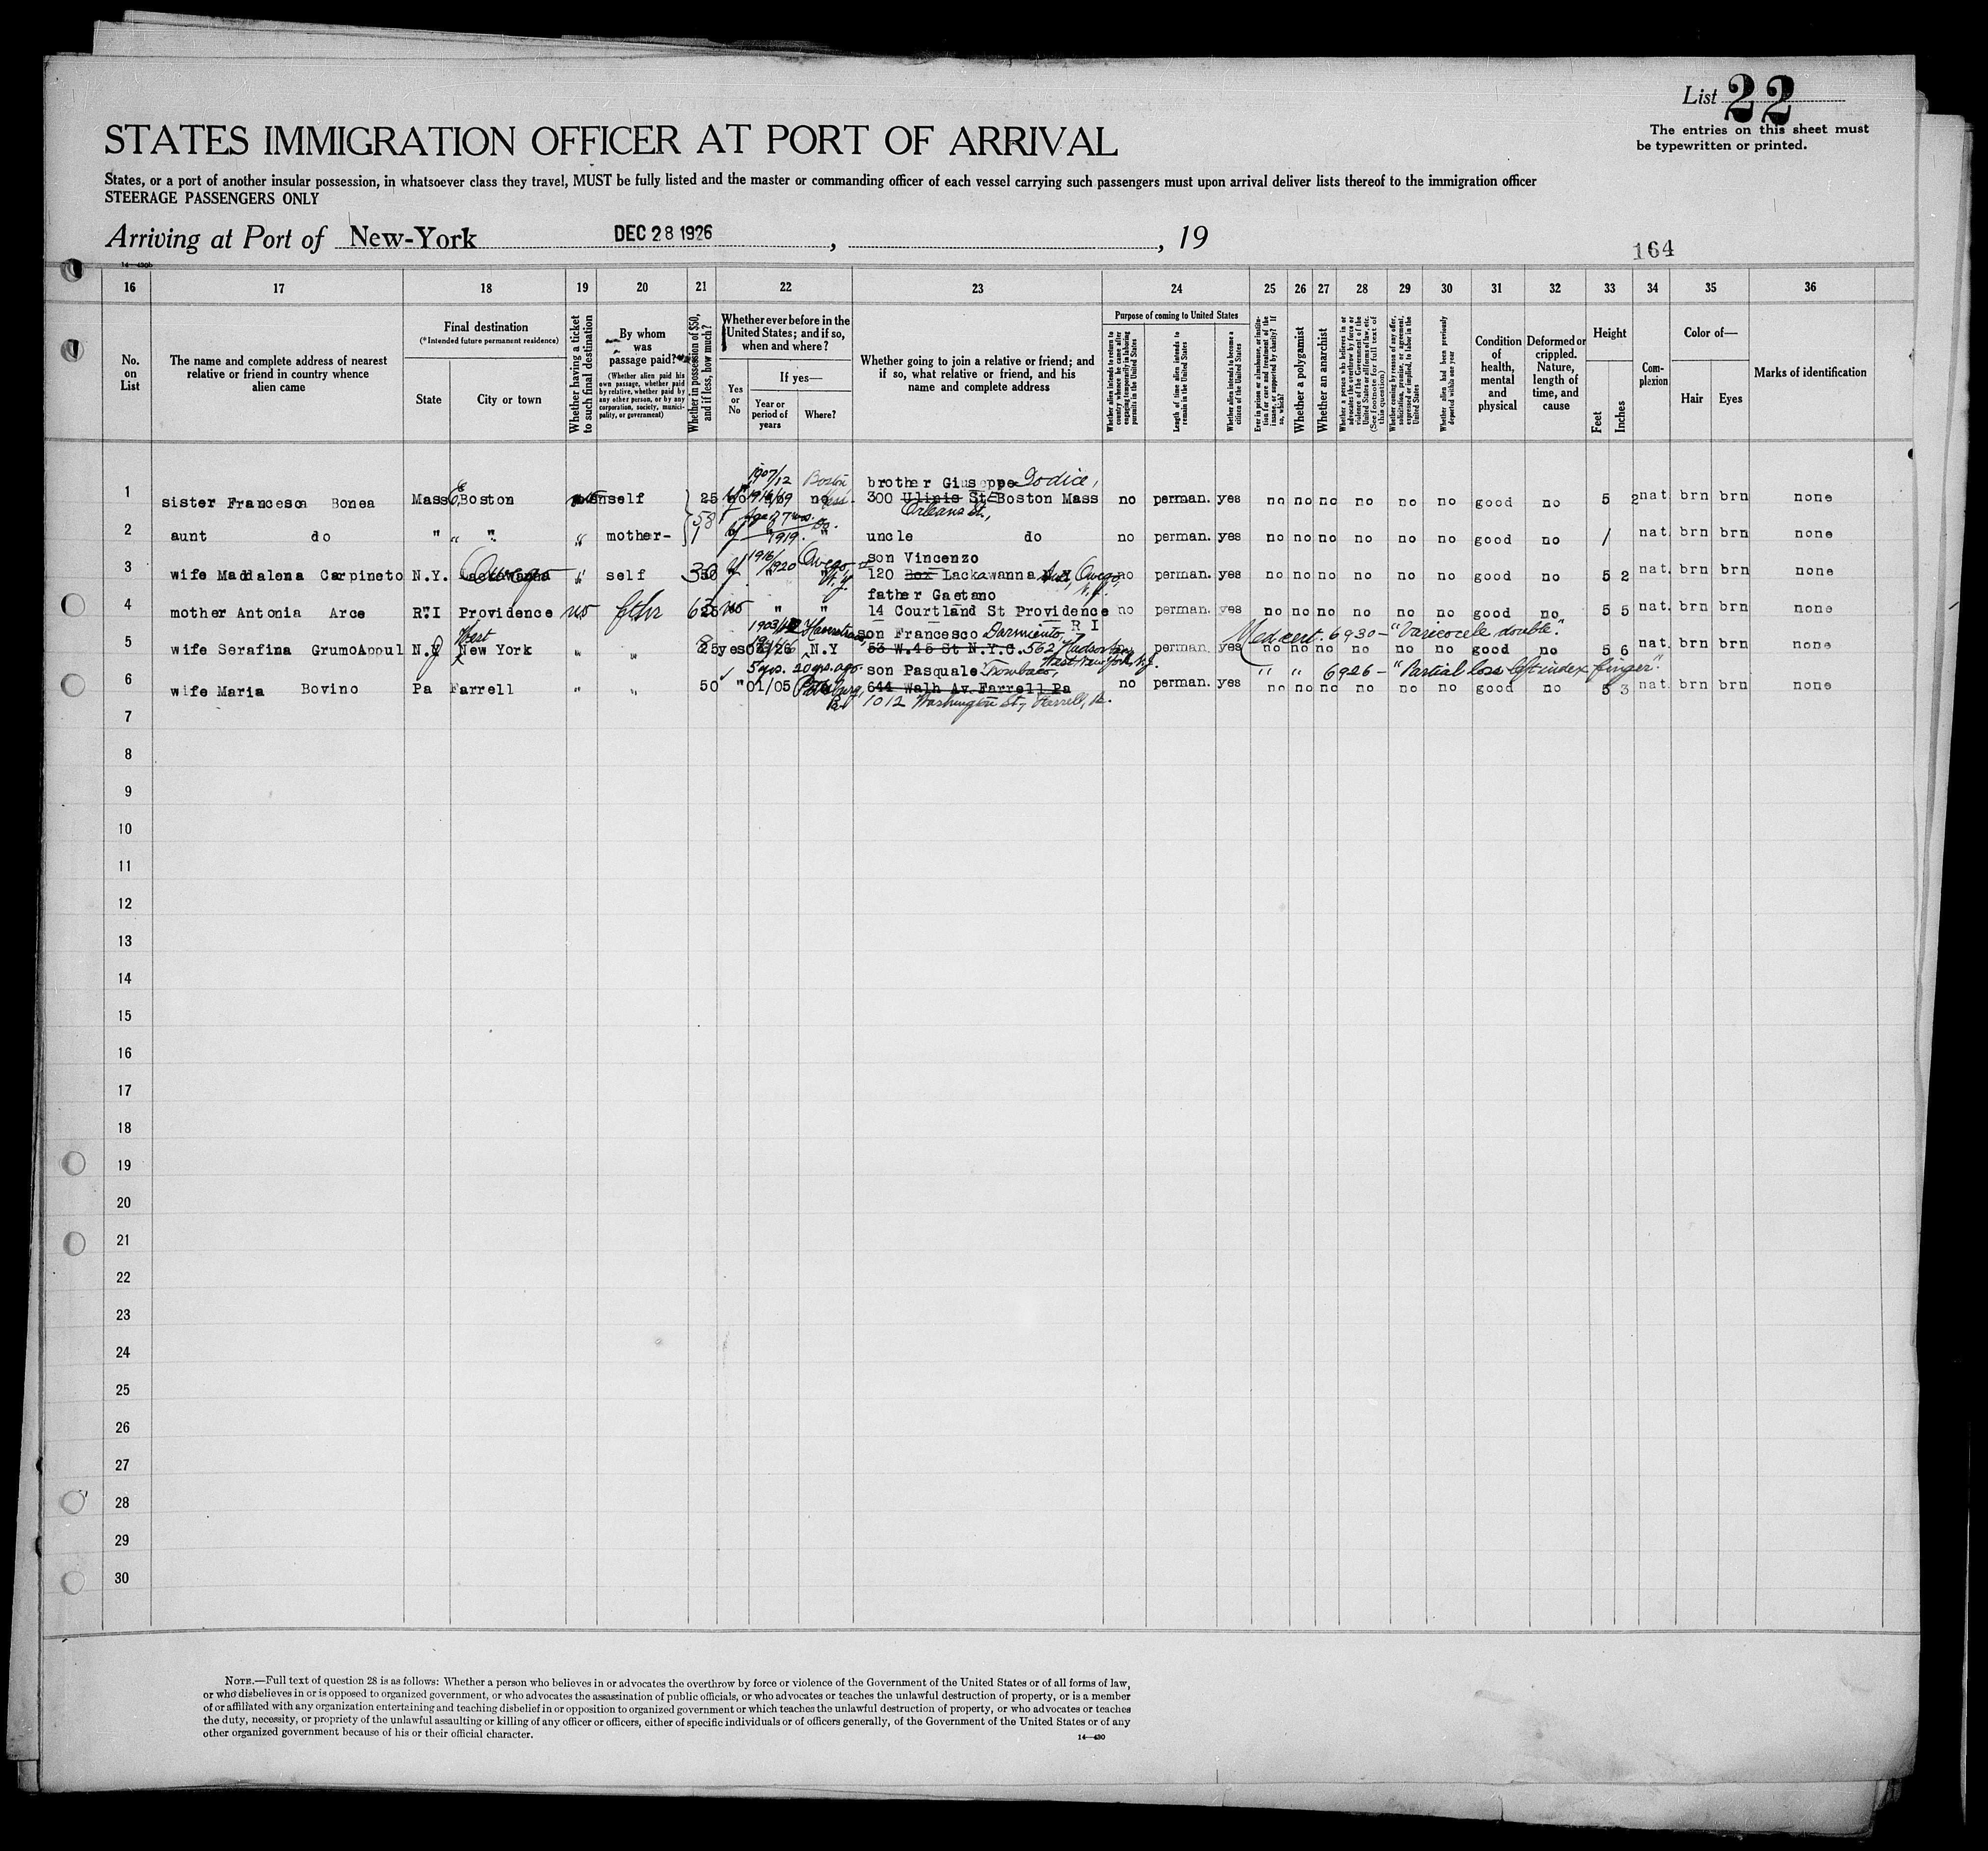 List 22
The entries on this sheet must
be typewritten or printed.
STATES IMMIGRATION OFFICER AT PORT OF ARRIVAL
States, or a port of another insular possession, in whatsoever class they travel, MUST be fully listed and the master or commanding officer of each vessel carrying such passengers must upon arrival deliver lists thereof to the immigration officer
STEERAGE PASSENGERS ONLY
Arriving at Port of New-York DEC 28 1926, , 19
164
14—430b
16 17 18 19 20 21 22 23 24 25 26 27 28 29 30 31 32 33 34 35 36
No. on List
The name and complete address of nearest relative or friend in country whence alien came
Final destination
(*Intended future permanent residence)
State
City or town
Whether having a ticket to such final destination
By whom was passage paid?
(Whether alien paid his own passage, whether paid by relative, whether paid by any other person, or by any corporation, society, municipality, or government)
Whether in possession of $50, and if less, how much?
Whether ever before in the United States; and if so, when and where?
Yes or No
If yes—
Year or period of years
Where?
Whether going to join a relative or friend; and if so, what relative or friend, and his name and complete address
Purpose of coming to United States
Whether alien intends to return to country whence he came after engaging temporarily in laboring pursuits in the United States
Length of time alien intends to remain in the United States
Whether alien intends to become a citizen of the United States
Ever in prison or almshouse, or institution for care and treatment of the insane, or supported by charity? If so, which?
Whether a polygamist
Whether an anarchist
Whether a person who believes in or advocates the overthrow by force or violence of the Government of the United States or all forms of law, etc. (See footnote for full text of this question)
Whether coming by reason of any offer, solicitation, promise, or agreement, expressed or implied, to labor in the United States
Whether alien had been previously deported within one year
Condition of health, mental and physical
Deformed or crippled. Nature, length of time, and cause
Height
Feet
Inches
Complexion
Color of—
Hair
Eyes
Marks of identification
1907/12 Boston
brother Giuseppe Iodice,
1 sister Francesca Bonea Mass Boston self 25 no 300 Ulinis St Boston Mass no perman. yes no no no no no no good no 5 2 nat brn brn none
58 Orleans St.,
2 aunt do " " " mother- 1919 " uncle do no perman. yes no no no no no no good no / nat. brn brn none
1916/1920 Owego son Vincenzo
3 wife Maddalena Carpineto N.Y. Lackawanna Owego " self 30 N.Y. 120 Box Lackawanna Owego, N.Y. no perman. yes no no no no no no good no 5 2 nat. brn brn none
father Gaetano
4 mother Antonia Arce R.I Providence no fthr 25 no " " 14 Courtland St Providence no perman. yes no no no no no no good no 5 5 nat. brn brn none
R I
West son Francesco Darmiento, Med cert. 6930 – "Varicocele double."
5 wife Serafina GrumoAppul N.J New York " " 25 yes N.Y 53 W.45 St N.Y.C. 562 Hudson perman. yes no no no no no no good no 5 6 nat. brn brn none
West New York, N.J.
5 yrs. 20 yrs. ago. son Pasquale " " 6926 – "Partial loss left index finger".
6 wife Maria Bovino Pa Farrell " " 50 " 01/05 644 Walh Av. Farrell Pa no perman. yes no no no no no no good no 5 3 nat. brn brn none
Pa. 1012 Washington St., Farrell, Pa.
7
8
9
10
11
12
13
14
15
16
17
18
19
20
21
22
23
24
25
26
27
28
29
30
NOTE.—Full text of question 28 is as follows: Whether a person who believes in or advocates the overthrow by force or violence of the Government of the United States or of all forms of law,
or who disbelieves in or is opposed to organized government, or who advocates the assassination of public officials, or who advocates or teaches the unlawful destruction of property, or is a member
of or affiliated with any organization entertaining and teaching disbelief in or opposition to organized government or which teaches the unlawful destruction of property, or who advocates or teaches
the duty, necessity, or propriety of the unlawful assaulting or killing of any officer or officers, either of specific individuals or of officers generally, of the Government of the United States or of any
other organized government because of his or their official character.
14—430